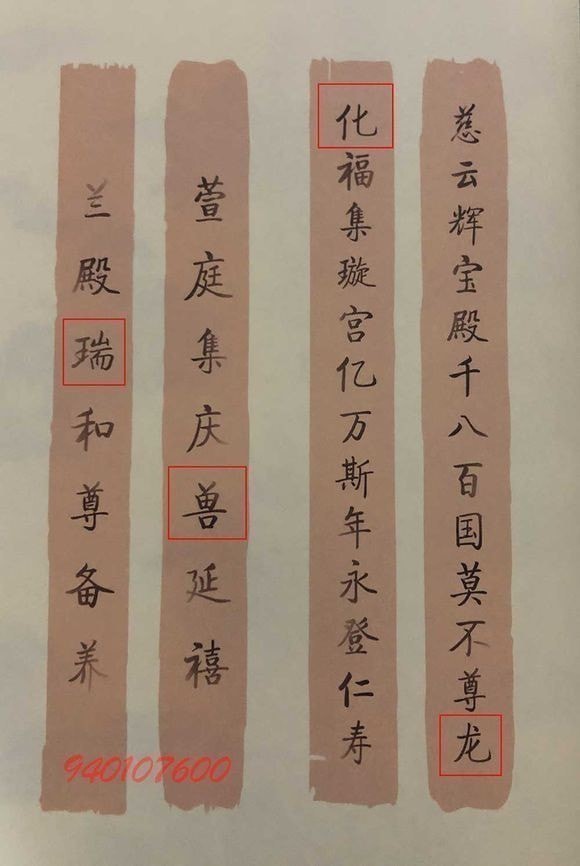 慈云辉宝殿千八百国莫不尊龙
化福集璇宫亿万斯年永登仁寿
萱庭集庆兽延禧
兰殿瑞和尊备养
940107600